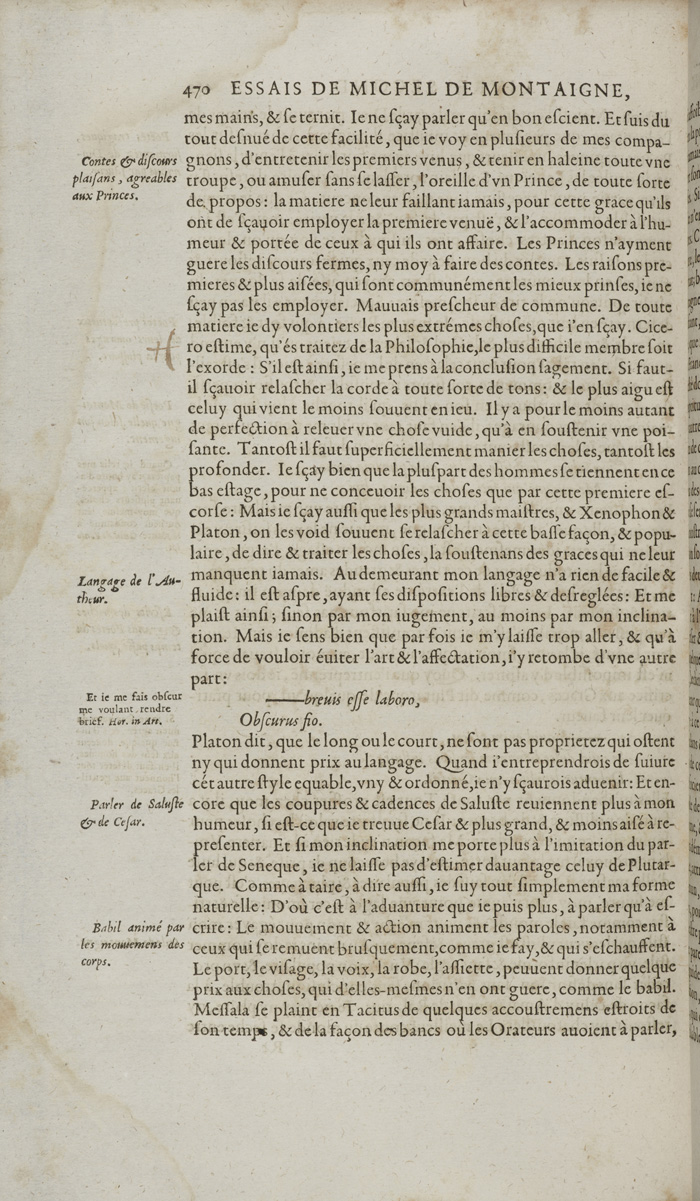 470 ESSAIS DE MICHEL DE MONTAIGNE,
mes mains, & ſe ternit. Ie ne ſçay parler qu'en bon eſcient. Et ſuis du
tout deſnué de cette facilité, que ie voy en pluſieurs de mes compa-
Contes & diſcours
plaiſans, agreables
aux Princes.
gnons, d'entretenir les premiers venus, & tenir en haleine toute vne
troupe, ou amuſer ſans ſe laſſer, l'oreille d'vn Prince, de toute ſorte
de propos: la matiere ne leur faillant iamais, pour cette grace qu'ils
ont de ſçauoir employer la premiere venuë, & l'accommoder à l'hu-
meur & portée de ceux à qui ils ont affaire. Les Princes n'ayment
guere les diſcours fermes, ny moy à faire des contes. Les raiſons pre-
mieres & plus aiſées, qui ſont communément les mieux prinſes, ie ne
ſçay pas les employer. Mauuais preſcheur de commune. De toute
matiere ie dy volontiers les plus extrémes choſes, que i'en ſçay. Cice-
ro eſtime, qu'és traitez de la Philoſophie, le plus difficile membre ſoit
l'exorde: S'il eſt ainſi, ie me prens à la concluſion ſagement. Si faut-
il ſçauoir relaſcher la corde à toute ſorte de tons: & le plus aigu eſt
celuy qui vient le moins ſouuent en ieu. Il y a pour le moins autant
de perfection à releuer vne choſe vuide, qu'à en ſouſtenir vne poi-
ſante. Tantoſt il faut ſuperficiellement manier les choſes, tantoſt les
profonder. Ie ſçay bien que la pluſpart des hommes ſe tiennent en ce
bas eſtage, pour ne conceuoir les choſes que par cette premiere eſ-
corſe: Mais ie ſçay auſſi que les plus grands maiſtres, & Xenophon &
Platon, on les void ſouuent ſe relaſcher à cette baſſe façon, & popu-
laire, de dire & traiter les choſes, la ſouſtenans des graces qui ne leur
Langage de l'Au-
theur.
manquent iamais. Au demeurant mon langage n'a rien de facile &
fluide: il eſt aſpre, ayant ſes diſpoſitions libres & deſreglées: Et me
plaiſt ainſi; ſinon par mon iugement, au moins par mon inclina-
tion. Mais ie ſens bien que par fois ie m'y laiſſe trop aller, & qu'à
force de vouloir éuiter l'art & l'affectation, i'y retombe d'vne autre
part:
Et ie me fais obſcur
me voulant rendre
brief. Hor. in Art.
——breuis eſſe laboro,
Obſcurus fio.
Platon dit, que le long ou le court, ne ſont pas proprietez qui oſtent
ny qui donnent prix au langage. Quand i'entreprendrois de ſuiure
cét autre ſtyle equable, vny & ordonné, ie n'y ſçaurois aduenir: Et en-
Parler de Saluſte
& de Ceſar.
core que les coupures & cadences de Saluſte reuiennent plus à mon
humeur, ſi eſt-ce que ie treuue Ceſar & plus grand, & moins aiſé à re-
preſenter. Et ſi mon inclination me porte plus à l'imitation du par-
ler de Seneque, ie ne laiſſe pas d'eſtimer dauantage celuy de Plutar-
que. Comme à taire, à dire auſſi, ie ſuy tout ſimplement ma forme
naturelle: D'où c'eſt à l'aduanture que ie puis plus, à parler qu'à eſ-
Babil animé par
les mouuemens des
corps.
crire: Le mouuement & action animent les paroles, notamment à
ceux qui ſe remuent bruſquement, comme ie fay, & qui s'eſchauffent.
Le port, le viſage, la voix, la robe, l'aſſiette, peuuent donner quelque
prix aux choſes, qui d'elles-meſmes n'en ont guere, comme le babil.
Meſſala ſe plaint en Tacitus de quelques accouſtremens eſtroits de
ſon temps, & de la façon des bancs où les Orateurs auoient à parler,